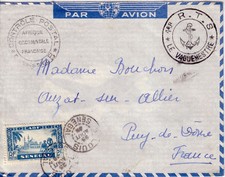 PAR AVION
CONTROLE POSTAL
AFRIQUE
OCCIDENTALE
FRANÇAISE
R.T.S
LE VAGUEMESTRE
Madame Bouchors
Auzat-sur-Allier
Puy-de-Dôme
France
SENEGAL